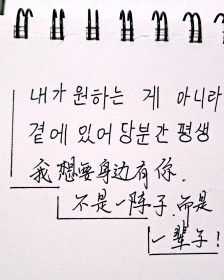 내가 원하는 게 아니라
곁에 있어 당분간 평생
我想要身边有你.
不是一阵子.而是
一辈子!